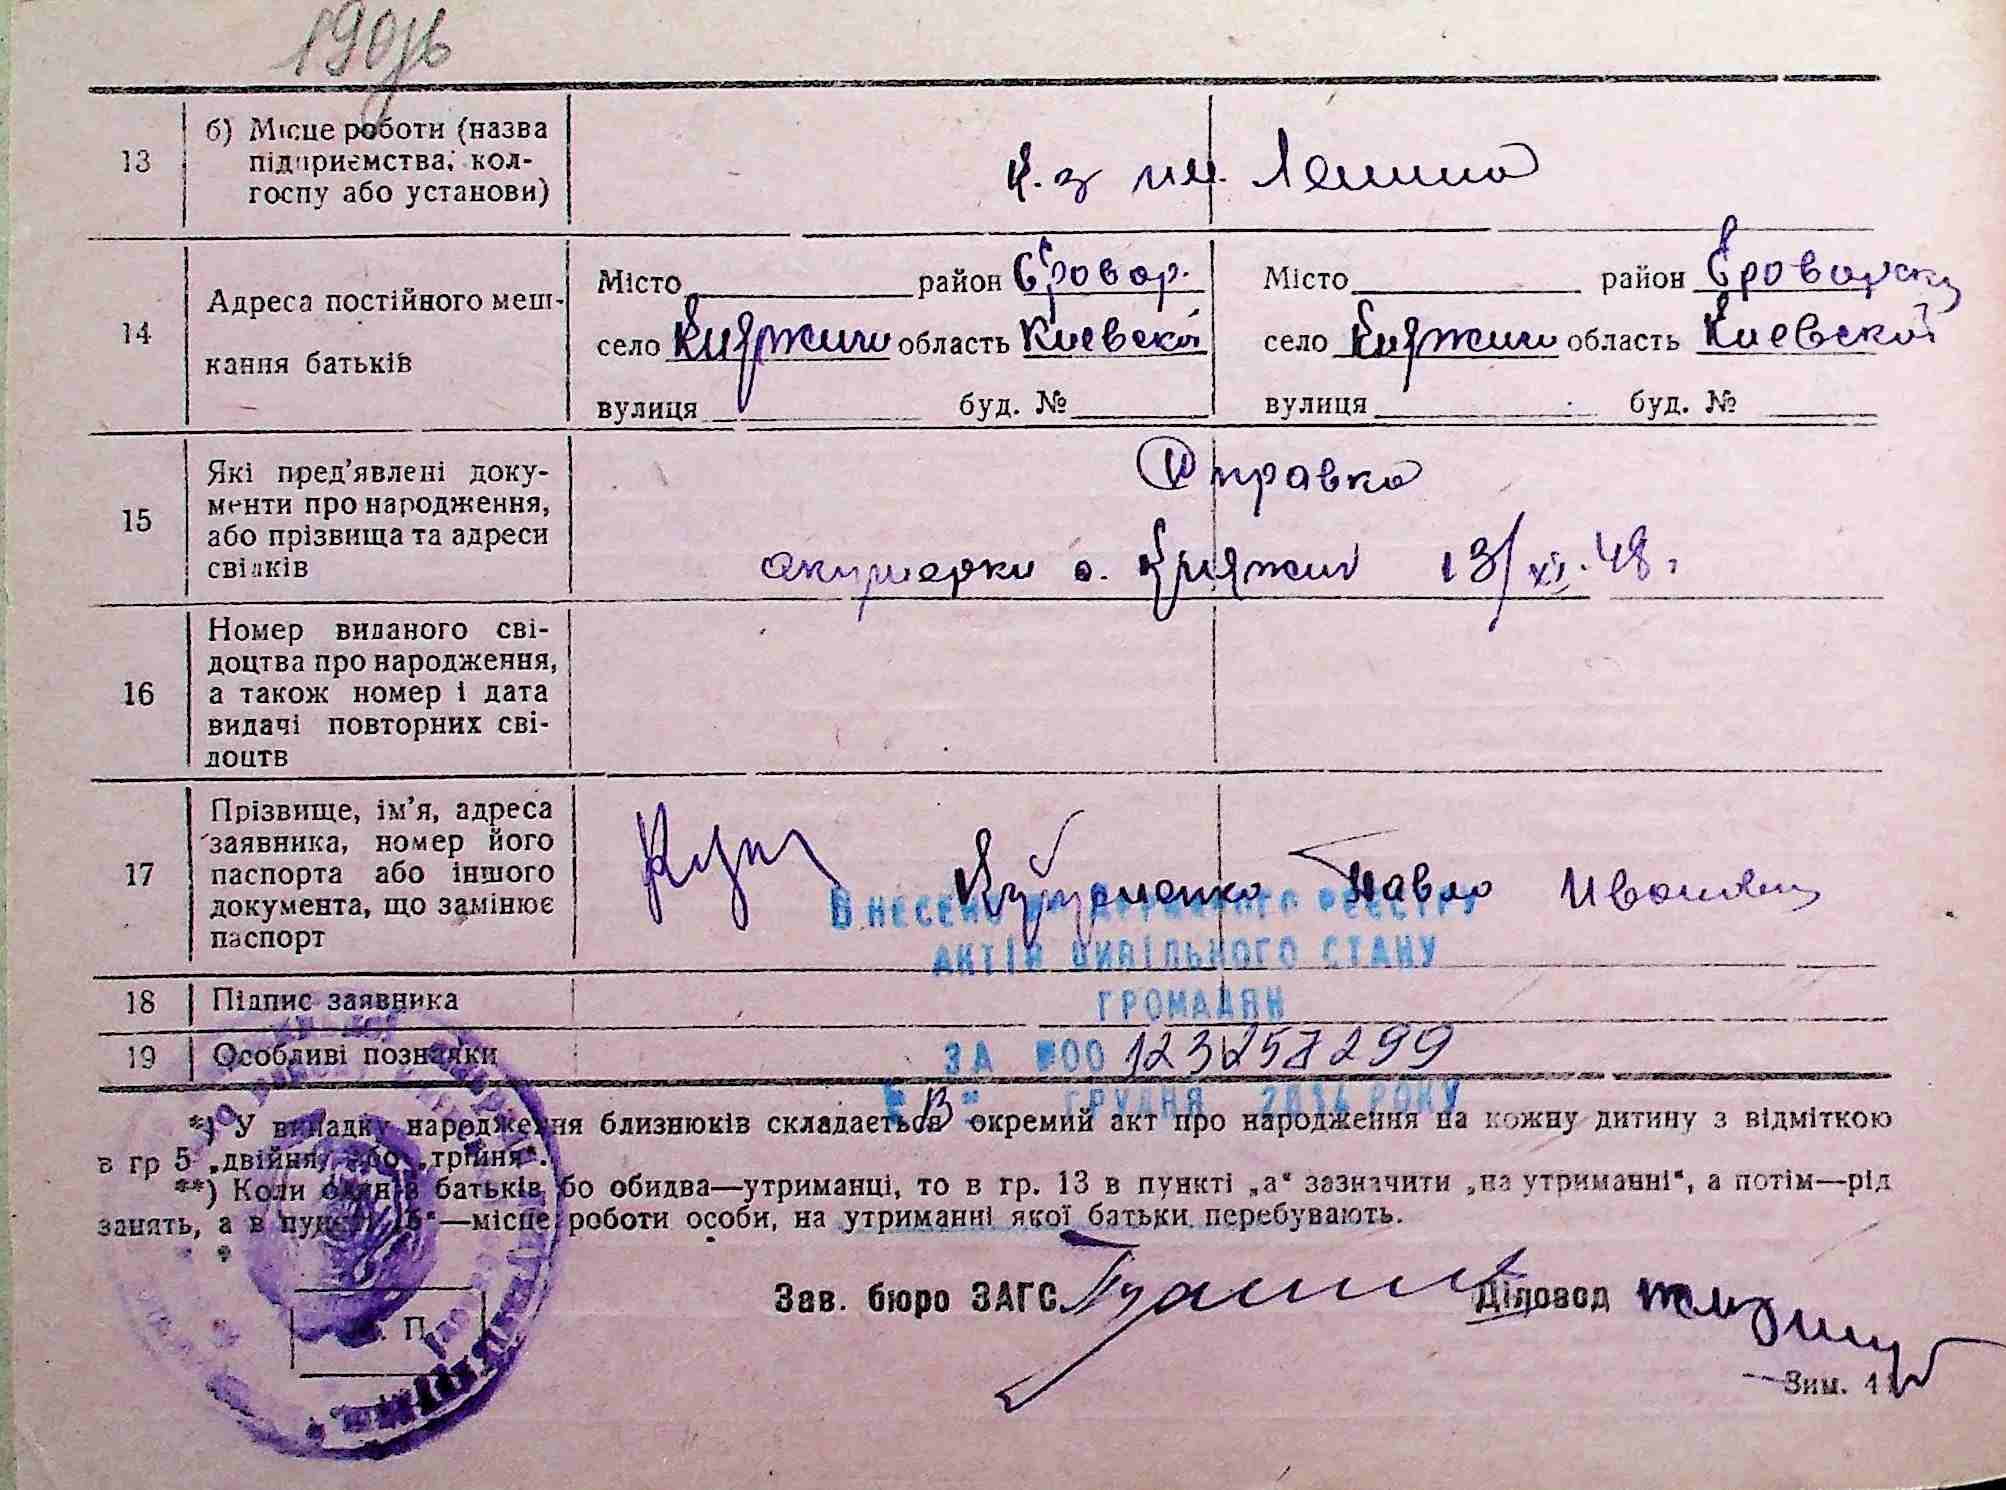 13 б) Місце роботи (назва
підприємства, кол-
госпу або установи)
к-з им. Ленина
14 Адреса постійного меш-
кання батьків
Місто район Бровар.
село Княжичи область Киевской
вулиця буд. №
Місто район Броварск
село Княжичи область Киевской
вулиця буд. №
15 Які пред’явлені доку-
менти про народження,
або прізвища та адреси
свідків
Справка
акушерки с. Княжич 13/XI.48г.
16 Номер виданого сві-
доцтва про народження,
а також номер і дата
видачі повторних сві-
доцтв
17 Прізвище, ім’я, адреса
заявника, номер його
паспорта або іншого
документа, що замінює
паспорт
Павло Иванович
ВНЕСЕНО ДО ДЕРЖАВНОГО РЕЄСТРУ
АКТІВ ЦИВІЛЬНОГО СТАНУ
ГРОМАДЯН
18 Підпис заявника
19 Особливі познаяки
ЗА №00 123257299
ГРУДНЯ 2014 РОКУ
*) У випадку народження близнюків складається окремий акт про народження на кожну дитину з відміткою
в гр 5 „двійня“ або „трійня“.
**) Коли один з батьків або обидва—утриманці, то в гр. 13 в пункті „а“ зазначити „на утриманні“, а потім—рід
занять, а в пункті „б“—місце роботи особи, на утриманні якої батьки перебувають.
Зав. бюро ЗАГС Діловод
П.
Зим.